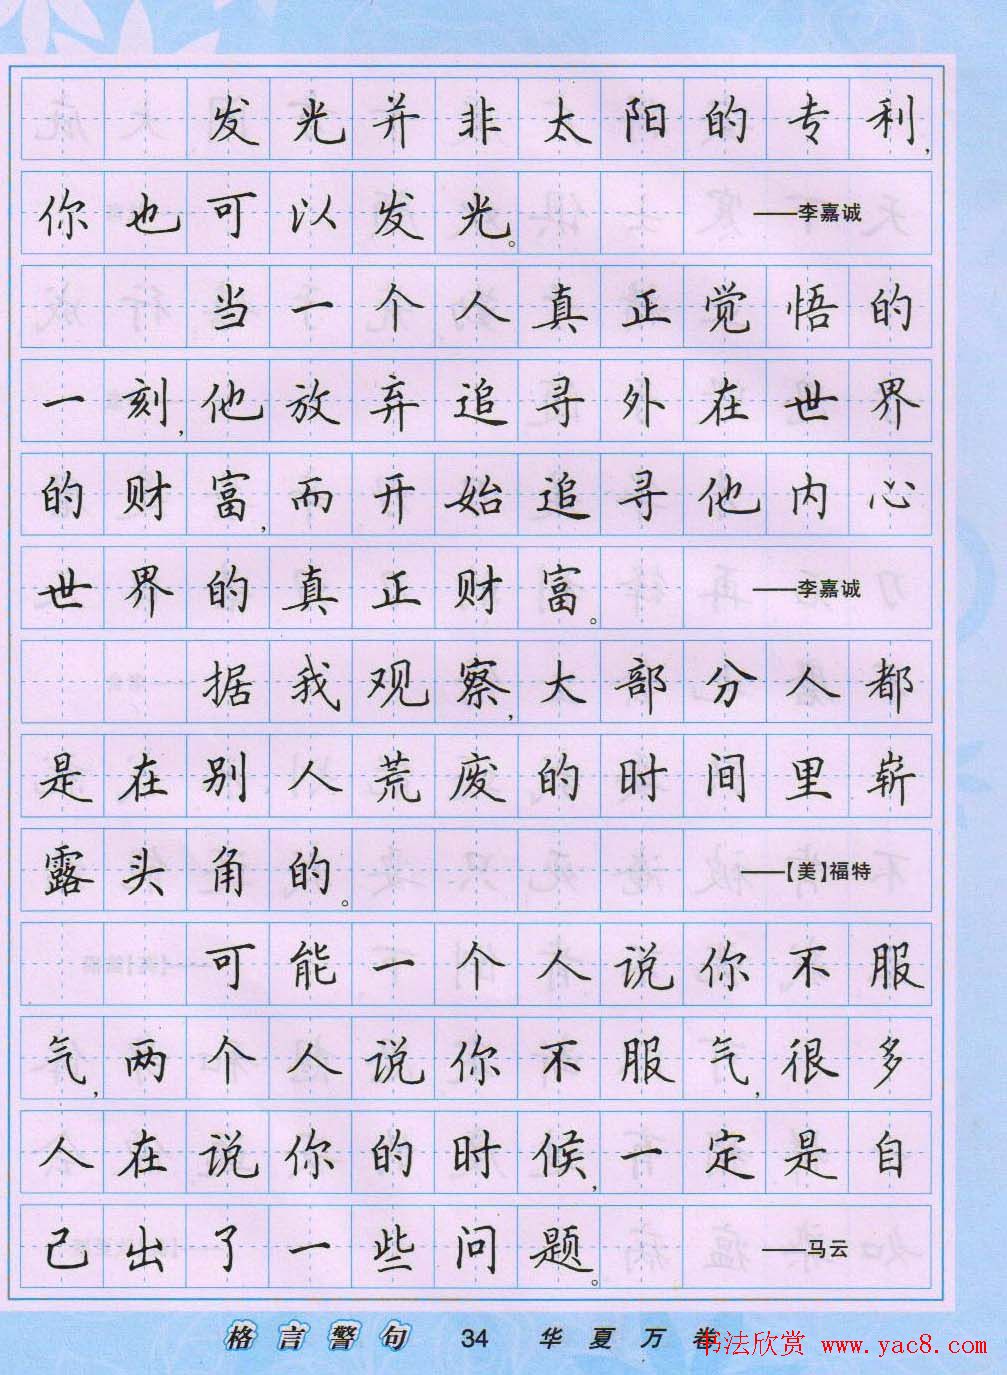 发光并非太阳的专利,
你也可以发光。 ——李嘉诚
当一个人真正觉悟的
一刻,他放弃追寻外在世界
的财富,而开始追寻他内心
世界的真正财富。 ——李嘉诚
据我观察,大部分人都
是在别人荒废的时间里崭
露头角的。 ——【美】福特
可能一个人说你不服
气,两个人说你不服气,很多
人在说你的时候,一定是自
己出了一些问题。 ——马云
格言警句 34 华夏万卷
书法欣赏 www.yac8.com